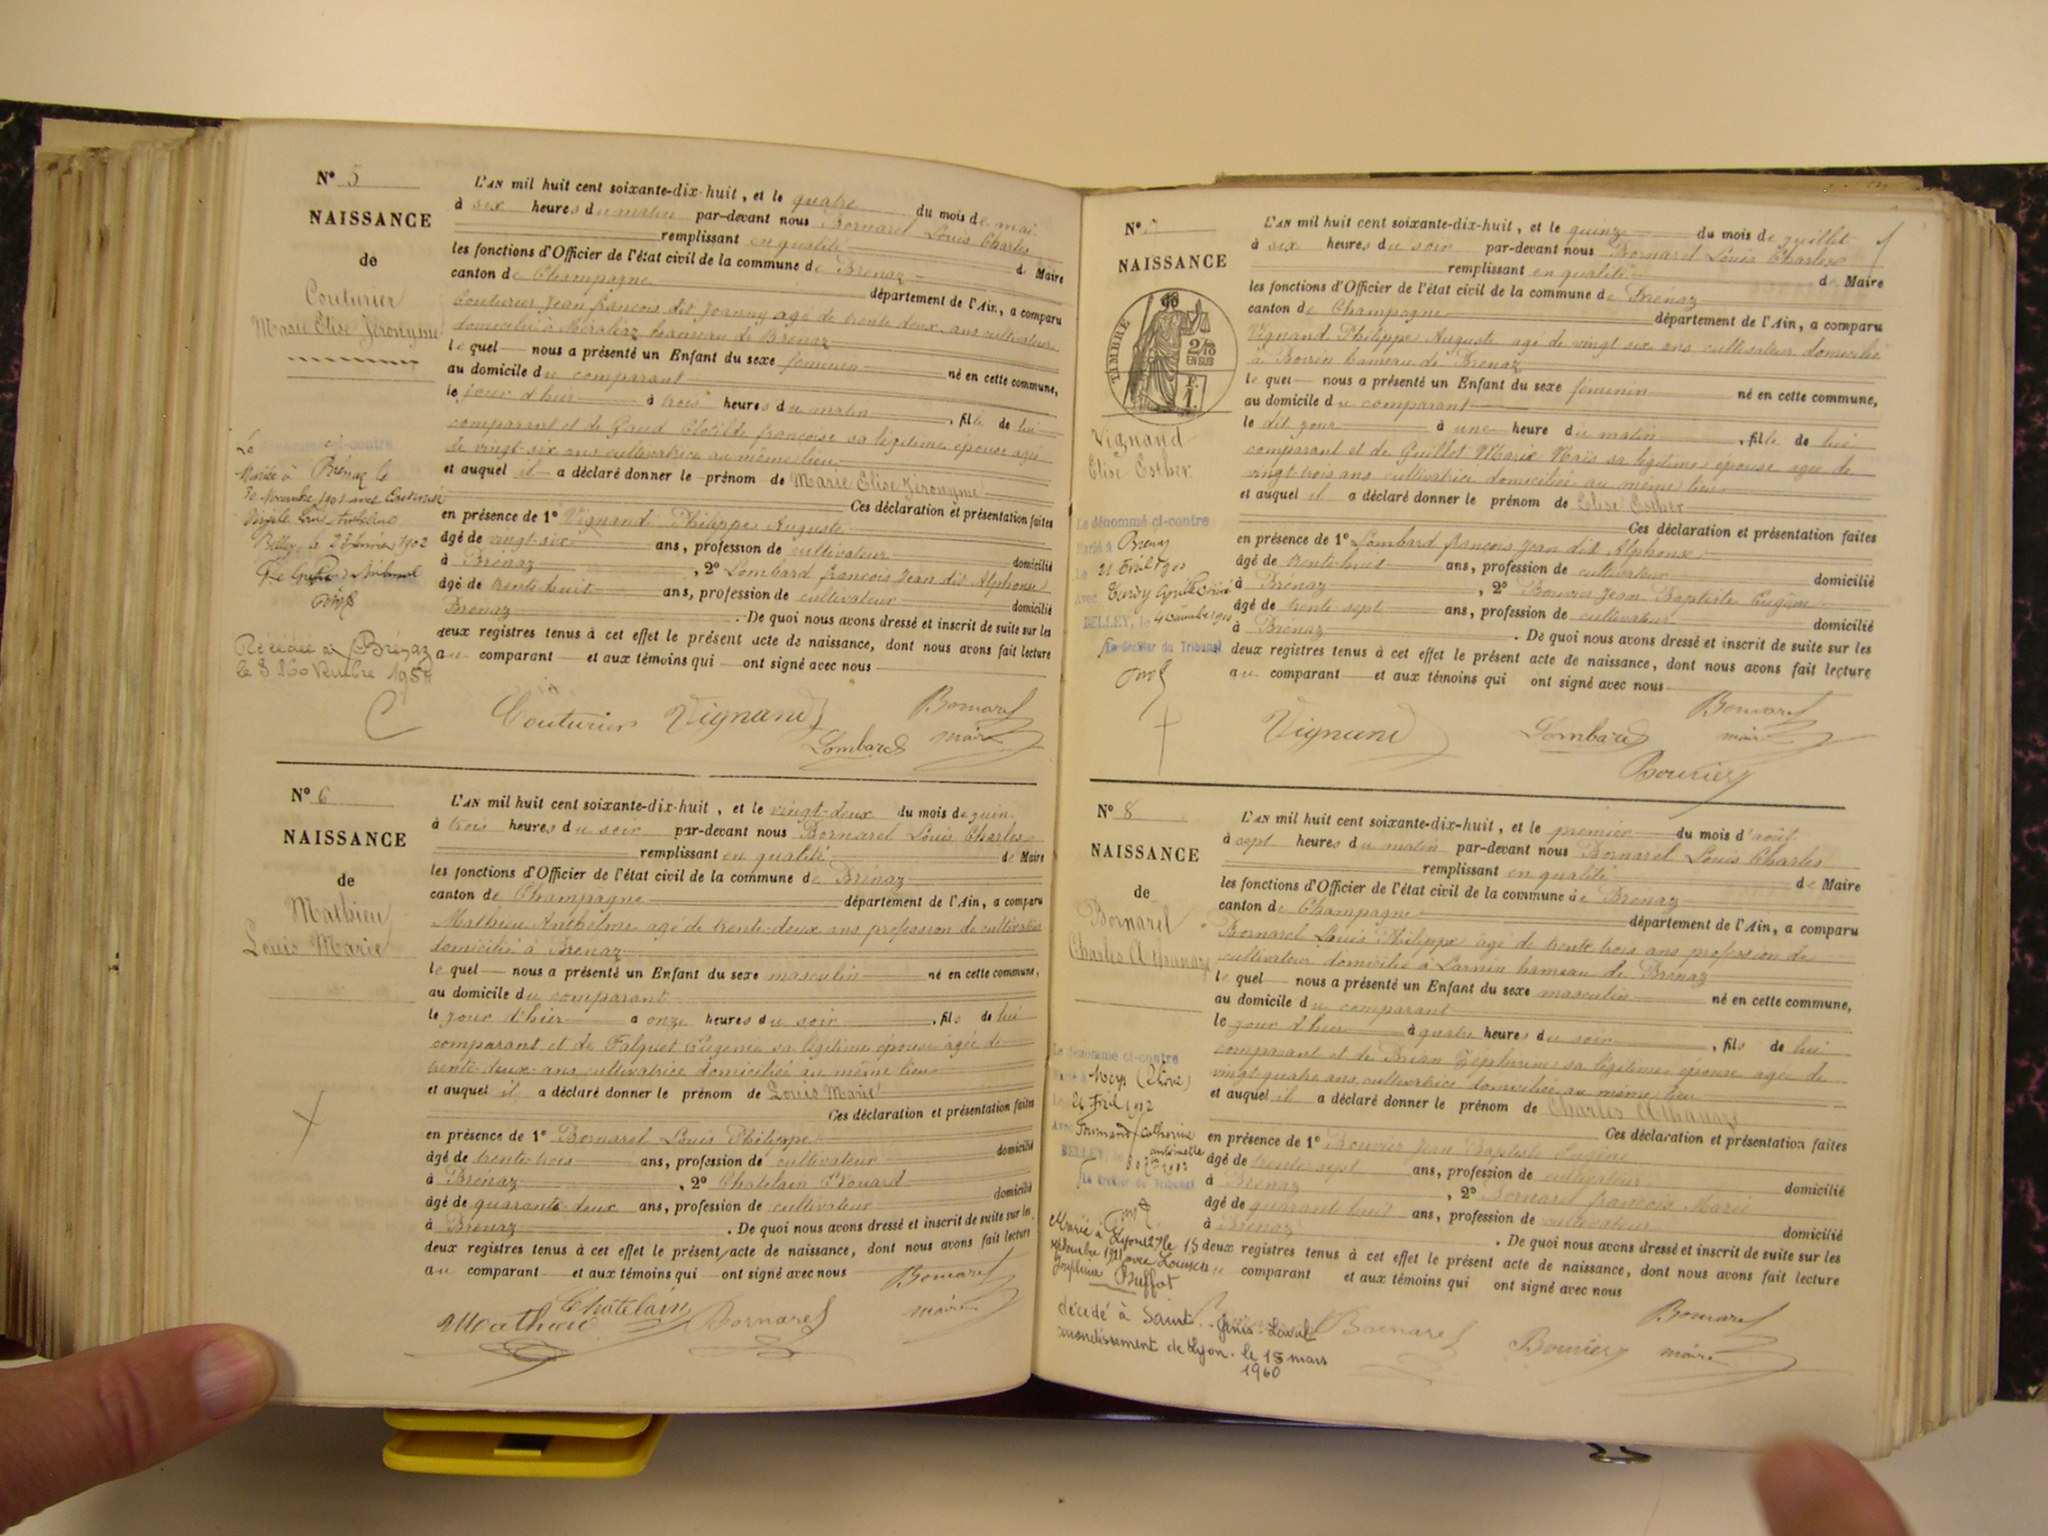 N° 5
NAISSANCE
de
Couturier
Marie Elise Jéronyme
L'AN mil huit cent soixante-dix-huit, et le quatre du mois de mai
à six heures du matin par-devant nous Bornarel Louis Charles
remplissant en qualité de Maire
les fonctions d'Officier de l'état civil de la commune de Brénaz
canton de Champagne département de l'Ain, a comparu
Couturier Jean françois dit Joanny agé de trente deux ans cultivateur
domicilié à Méraléaz hameau de Brénaz
lequel nous a présenté un Enfant du sexe féminin né en cette commune,
au domicile du comparant
le jour d'hier à trois heures du matin, fille de lui
comparant et de Clotilde françoise sa légitime épouse agée
de vingt-six ans cultivatrice au même lieu
et auquel il a déclaré donner le prénom de Marie Elise Jéronyme
Ces déclaration et présentation faites
en présence de 1° Vignand Philippe Auguste
âgé de vingt-six ans, profession de cultivateur domicilié
à Brénaz, 2° Lombard françois Jean dit Alphonse
âgé de trente-huit ans, profession de cultivateur domicilié
Brénaz. De quoi nous avons dressé et inscrit de suite sur les
deux registres tenus à cet effet le présent acte de naissance, dont nous avons fait lecture
au comparant et aux témoins qui ont signé avec nous
La dénommée ci-contre
Mariée à Brénaz le
Novembre 1901 avec
Belley, le 2 1902
Décédée à Brénaz
le 8 1957
Couturier Vignand Bornarel
Lombard maire
N° 6
NAISSANCE
de
Mathieu
Louis Marie
L'AN mil huit cent soixante-dix-huit, et le vingt-deux du mois de juin
à trois heures du soir par-devant nous Bornarel Louis Charles
remplissant en qualité de Maire
les fonctions d'Officier de l'état civil de la commune de Brénaz
canton de Champagne département de l'Ain, a comparu
Mathieu Anthelme agé de trente-deux ans profession de cultivateur
domicilié à Brénaz
lequel nous a présenté un Enfant du sexe masculin né en cette commune,
au domicile du comparant
le jour d'hier à onze heures du soir, fils de lui
comparant et de Falquet Eugénie sa légitime épouse agée de
trente-deux ans cultivatrice domiciliée au même lieu
et auquel il a déclaré donner le prénom de Louis Marie
Ces déclaration et présentation faites
en présence de 1° Bornarel Louis Philippe
âgé de trente-trois ans, profession de cultivateur domicilié
à Brénaz, 2° Chatelain Edouard
âgé de quarante-deux ans, profession de cultivateur domicilié
à Brénaz. De quoi nous avons dressé et inscrit de suite sur les
deux registres tenus à cet effet le présent acte de naissance, dont nous avons fait lecture
au comparant et aux témoins qui ont signé avec nous
Mathieu Chatelain Bornarel Bornarel
maire
N° 7
NAISSANCE
TIMBRE
2/10
EN SUS
F.
1
Vignand
Elise Esther
L'AN mil huit cent soixante-dix-huit, et le quinze du mois de juillet
à six heures du soir par-devant nous Bornarel Louis Charles
remplissant en qualité de Maire
les fonctions d'Officier de l'état civil de la commune de Brénaz
canton de Champagne département de l'Ain, a comparu
Vignand Philippe Auguste agé de vingt six ans cultivateur domicilié
à hameau de Brénaz
lequel nous a présenté un Enfant du sexe féminin né en cette commune,
au domicile du comparant
le dit jour à une heure du matin, fille de lui
comparant et de Guillot Marie sa légitime épouse agée de
vingt-trois ans cultivatrice domiciliée au même lieu
et auquel il a déclaré donner le prénom de Elise Esther
Ces déclaration et présentation faites
en présence de 1° Lombard françois Jean dit Alphonse
âgé de trente-huit ans, profession de cultivateur domicilié
à Brénaz, 2° Bouvier Jean Baptiste Eugène
âgé de trente-sept ans, profession de cultivateur domicilié
à Brénaz. De quoi nous avons dressé et inscrit de suite sur les
deux registres tenus à cet effet le présent acte de naissance, dont nous avons fait lecture
au comparant et aux témoins qui ont signé avec nous
Le dénommé ci-contre
Marié à
Le 21
avec
BELLEY, le 4
Le Greffier du Tribunal
Vignand Lombard Bornarel
maire
Bouvier
N° 8
NAISSANCE
de
Bornarel
Charles Athanaze
L'AN mil huit cent soixante-dix-huit, et le premier du mois d'août
à sept heures du matin par-devant nous Bornarel Louis Charles
remplissant en qualité de Maire
les fonctions d'Officier de l'état civil de la commune de Brénaz
canton de Champagne département de l'Ain, a comparu
Bornarel Louis Philippe âgé de trente trois ans profession de
cultivateur domicilié à hameau de Brénaz
lequel nous a présenté un Enfant du sexe masculin né en cette commune,
au domicile du comparant
le jour d'hier à quatre heures du soir, fils de lui
comparant et de sa légitime épouse agée de
vingt quatre ans cultivatrice domiciliée au même lieu
et auquel il a déclaré donner le prénom de Charles Athanaze
Ces déclaration et présentation faites
en présence de 1° Bouvier Jean Baptiste Eugène
âgé de trente-sept ans, profession de cultivateur domicilié
à Brénaz, 2° Bornarel françois Marie
âgé de quarante huit ans, profession de cultivateur domicilié
à Brénaz. De quoi nous avons dressé et inscrit de suite sur les
deux registres tenus à cet effet le présent acte de naissance, dont nous avons fait lecture
au comparant et aux témoins qui ont signé avec nous
Le dénommé ci-contre
avec Catherine
antoinette
BELLEY
Le Greffier du Tribunal
Marié à Lyon le 15
Joséphine Buffat
décédé à Saint-Genis-Laval
arrondissement de Lyon. le 18 mars
1960
Bornarel Bouvier Bornarel
maire